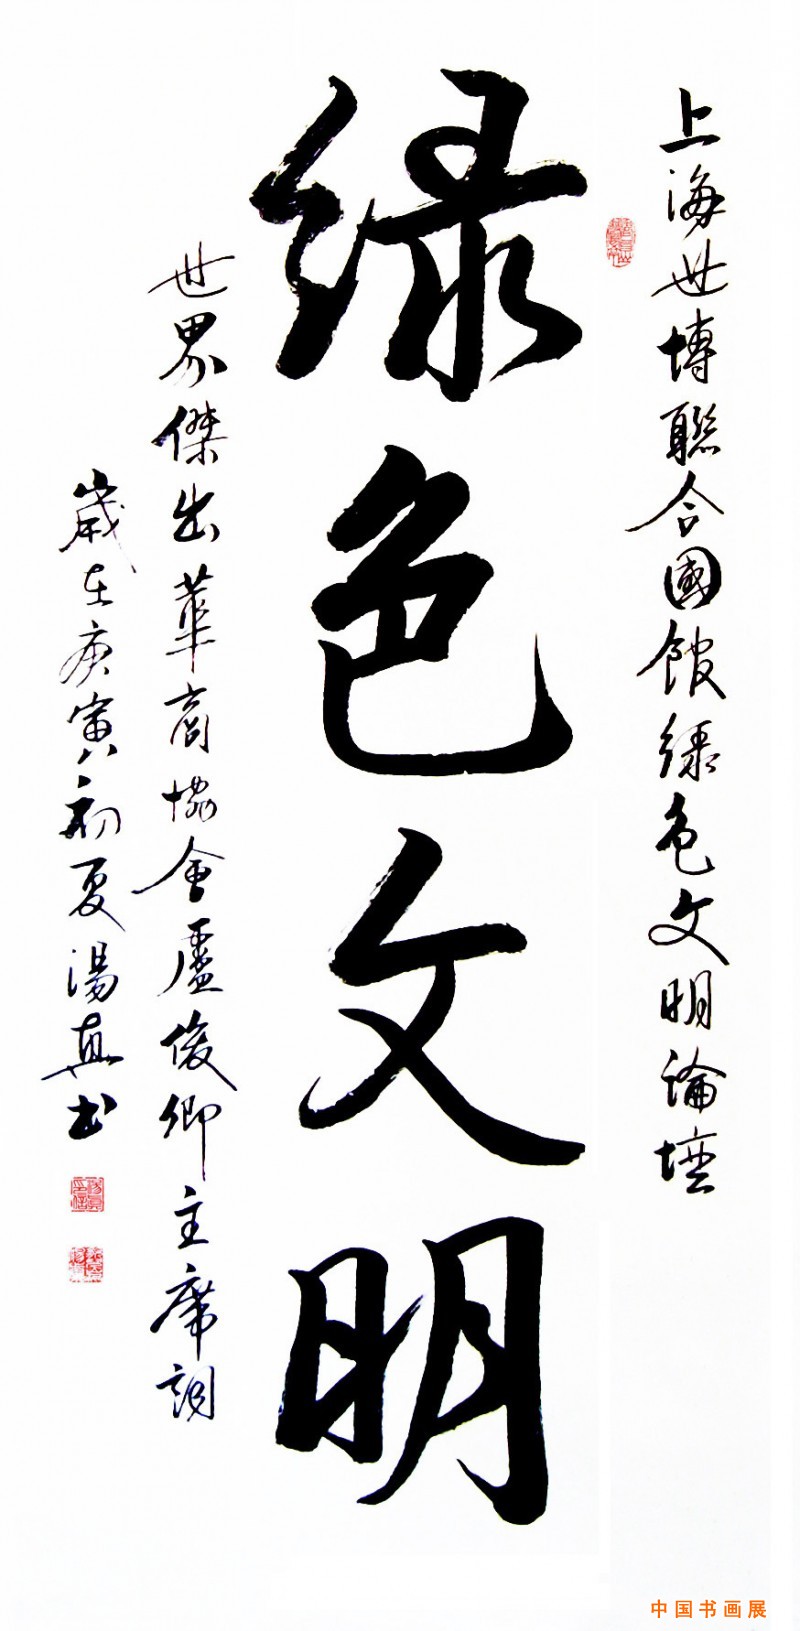 上海世博聯合國館綠色文明論壇
绿色文明
世界傑出華商協會盧俊卿主席詞
歲在庚寅初夏湯真书
中国书画展